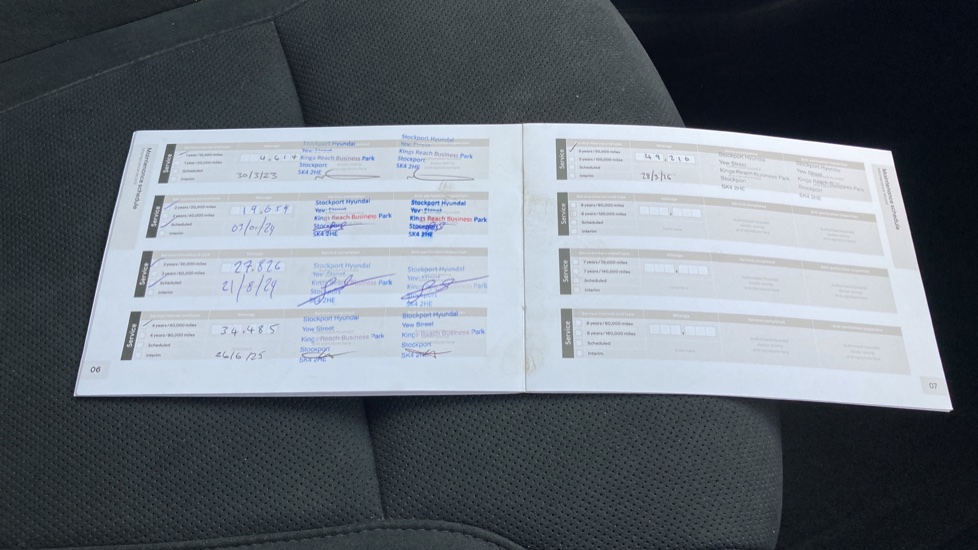 Maintenance schedule
Service
1 year / 10,000 miles
1 year / 20,000 miles
Scheduled
Interim
30/3/23
Stockport Hyundai
Yew Street
Kings Reach Business Park
Stockport
SK4 2HE
Stockport Hyundai
Yew Street
Kings Reach Business Park
Stockport
SK4 2HE
Service
2 years / 20,000 miles
2 years / 40,000 miles
Scheduled
Interim
19,659
Stockport Hyundai
Yew Street
Kings Reach Business Park
Stockport
SK4 2HE
Stockport Hyundai
Yew Street
Kings Reach Business Park
Stockport
SK4 2HE
Service
3 years / 30,000 miles
3 years / 60,000 miles
Scheduled
Interim
27,826
21/8/24
Stockport Hyundai
Yew Street
Kings Reach Business Park
Stockport
SK4 2HE
Stockport Hyundai
Yew Street
Kings Reach Business Park
Stockport
SK4 2HE
Service
4 years / 40,000 miles
4 years / 80,000 miles
Scheduled
Interim
34,485
26/6/25
Stockport Hyundai
Yew Street
Kings Reach Business Park
Stockport
SK4 2HE
Stockport Hyundai
Yew Street
Kings Reach Business Park
Stockport
SK4 2HE
06
Maintenance schedule
Service
5 years / 50,000 miles
5 years / 100,000 miles
Scheduled
Interim
49,210
Stockport Hyundai
Yew Street
Kings Reach Business Park
Stockport
SK4 2HE
Stockport Hyundai
Yew Street
Kings Reach Business Park
Stockport
SK4 2HE
Service
6 years / 60,000 miles
6 years / 120,000 miles
Scheduled
Interim
Service
7 years / 70,000 miles
7 years / 140,000 miles
Scheduled
Interim
Service
8 years / 80,000 miles
8 years / 160,000 miles
Scheduled
Interim
07